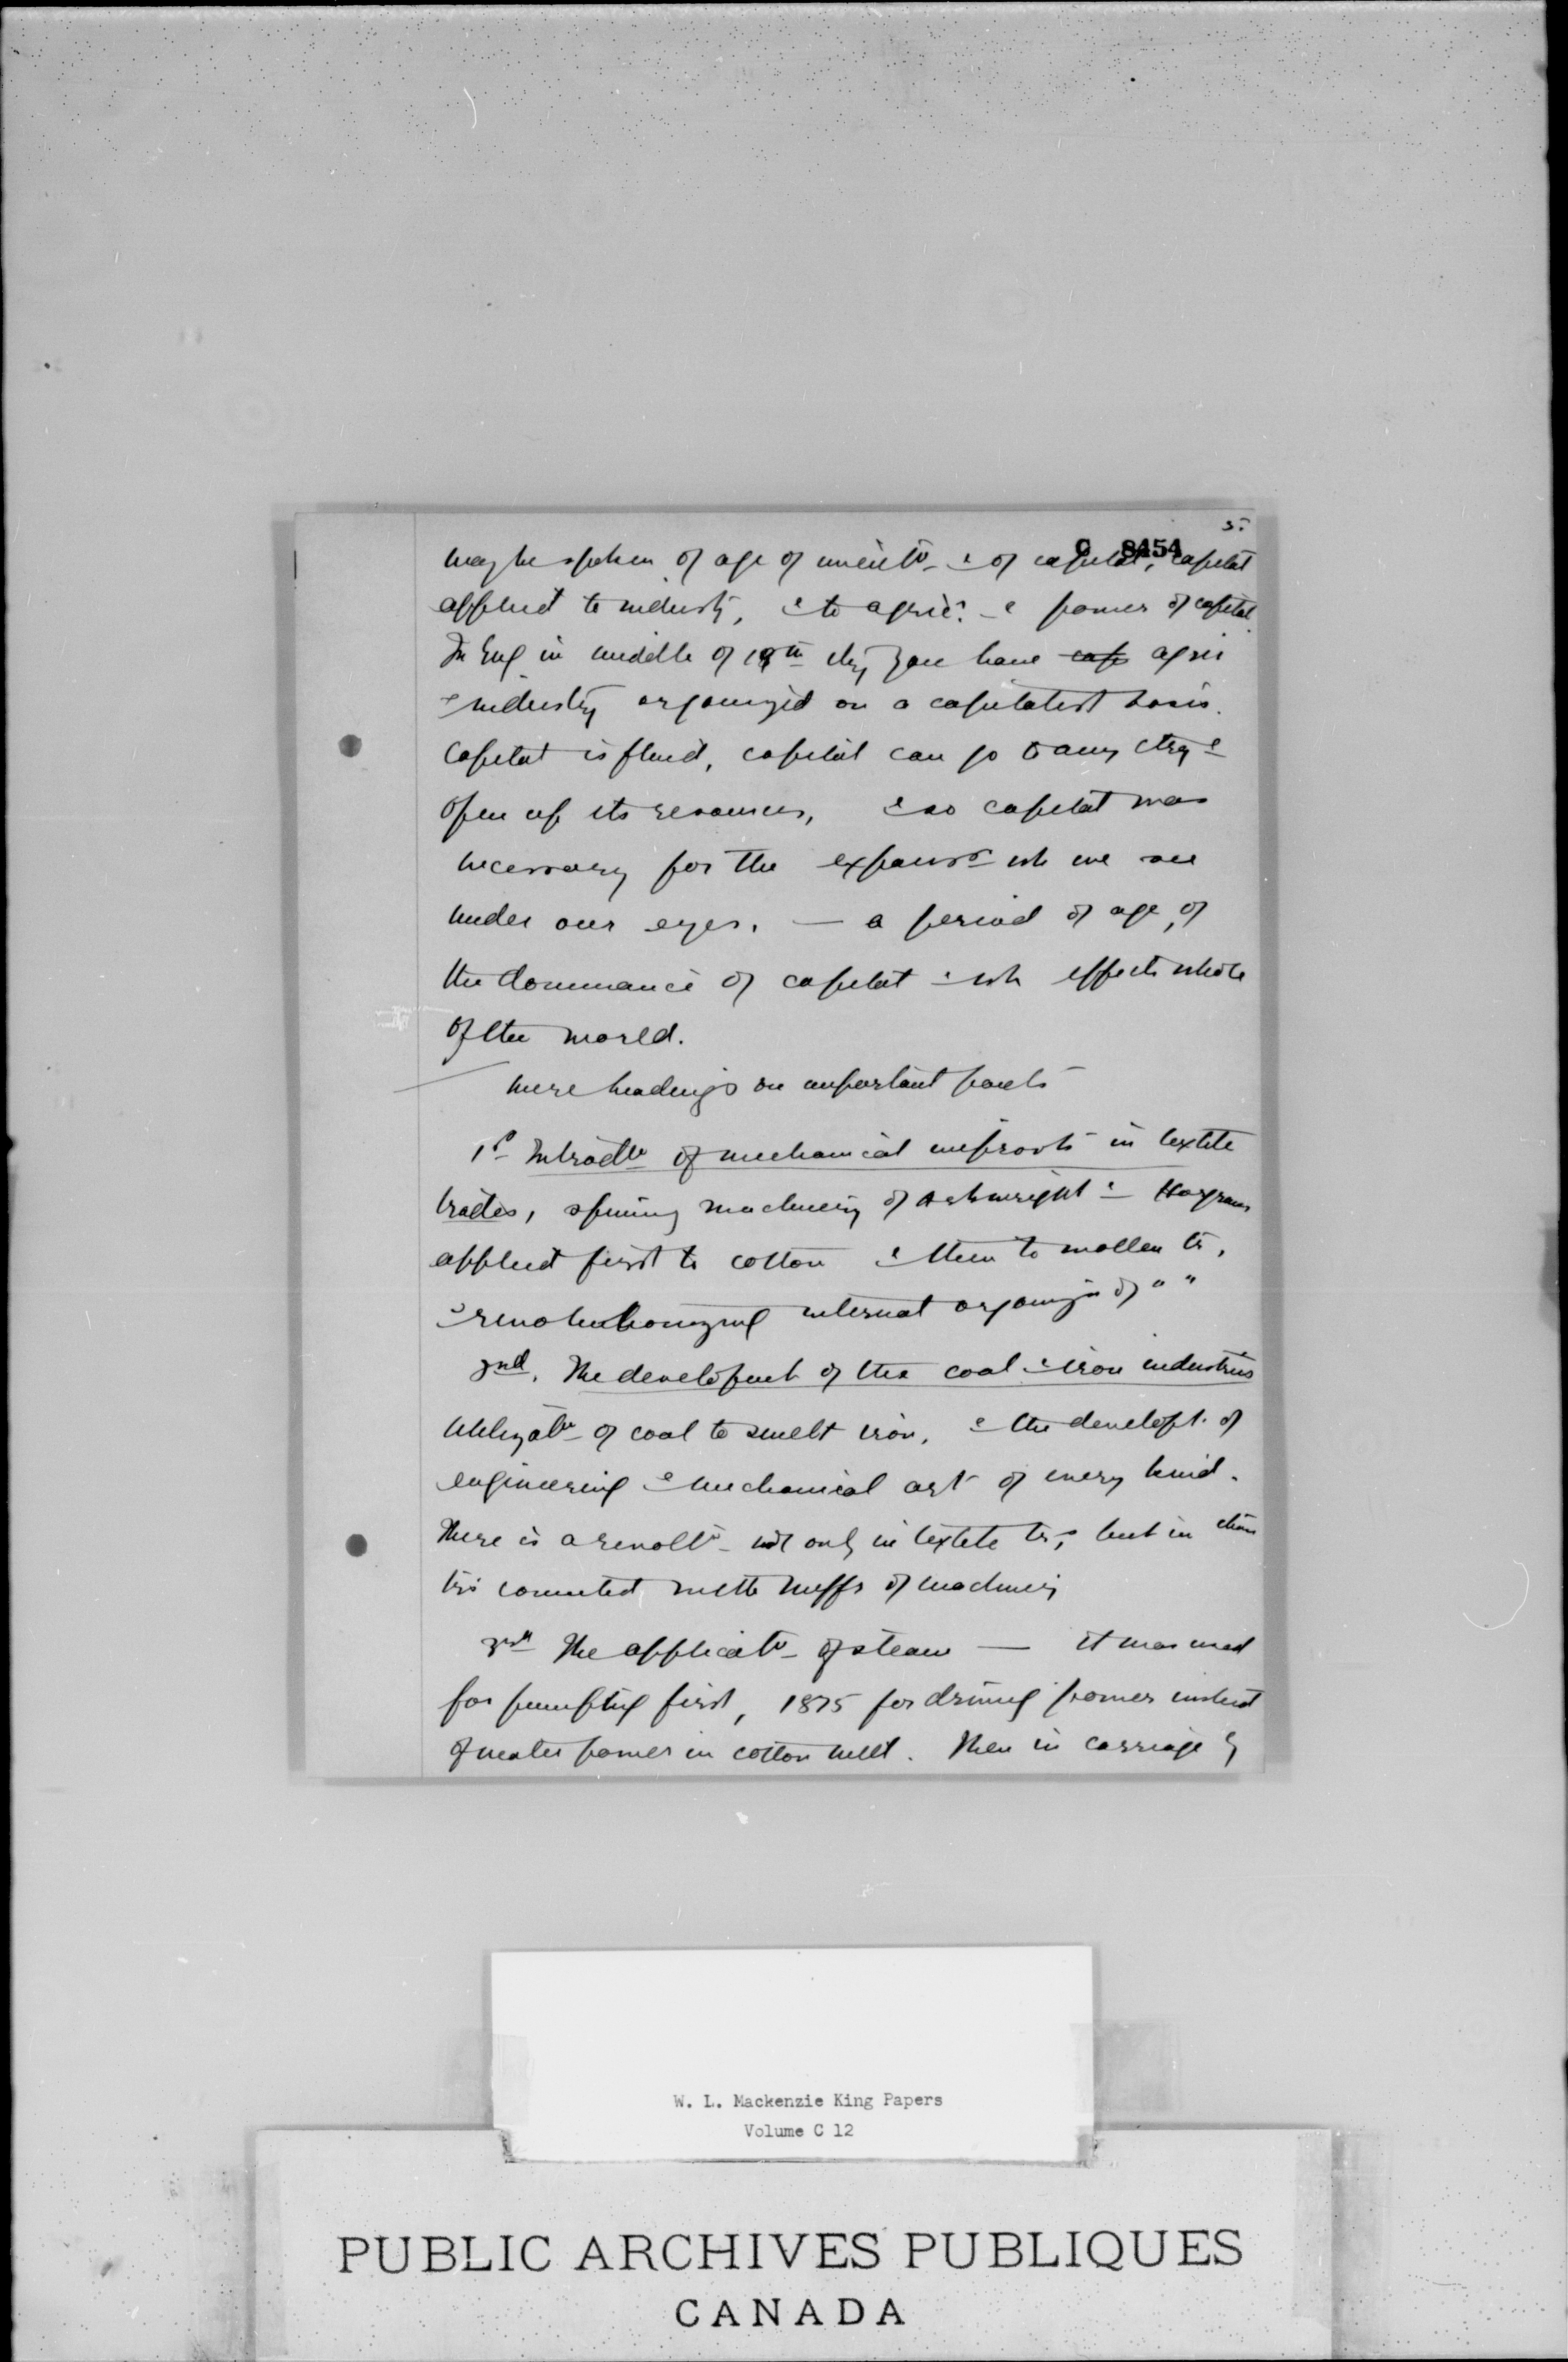 5.
C 8454
may be spoken of age of inventn & of capital, capital
applied to industy, & to agric. & power of capital
In Eng in middle of 19th cty you have cap agri
& industry organized on a capitalist basis.
Capital is fluid, capital can go to any ctry &
open up its resources, & so capital was
necessary for the expansn wh we see
under our eyes. — a period of age, of
the dominance of capital & wh effects whole
of the world.
mere headings on important parts
1st Introdtn of mechanical improvts in textile
trades, spinning machinery of Arkwright & Hargraves
applied first to cotton & then to wollen tr,
& revolutionizing internal organizn of " "
2nd. The developmt of the coal & iron industries
utilizatn of coal to smelt iron, & the developt. of
engineering & mechanical art of every kind.
There is a revoltn not only in textile trs, but in
trs connected with muffr of machinery
3rd The applicatn of steam — it was used
for pumping first, 1875 for driving power instead
of water power in cotton mill. Then in carriage
W. L. Mackenzie King Papers
Volume C 12
PUBLIC ARCHIVES PUBLIQUES
CANADA